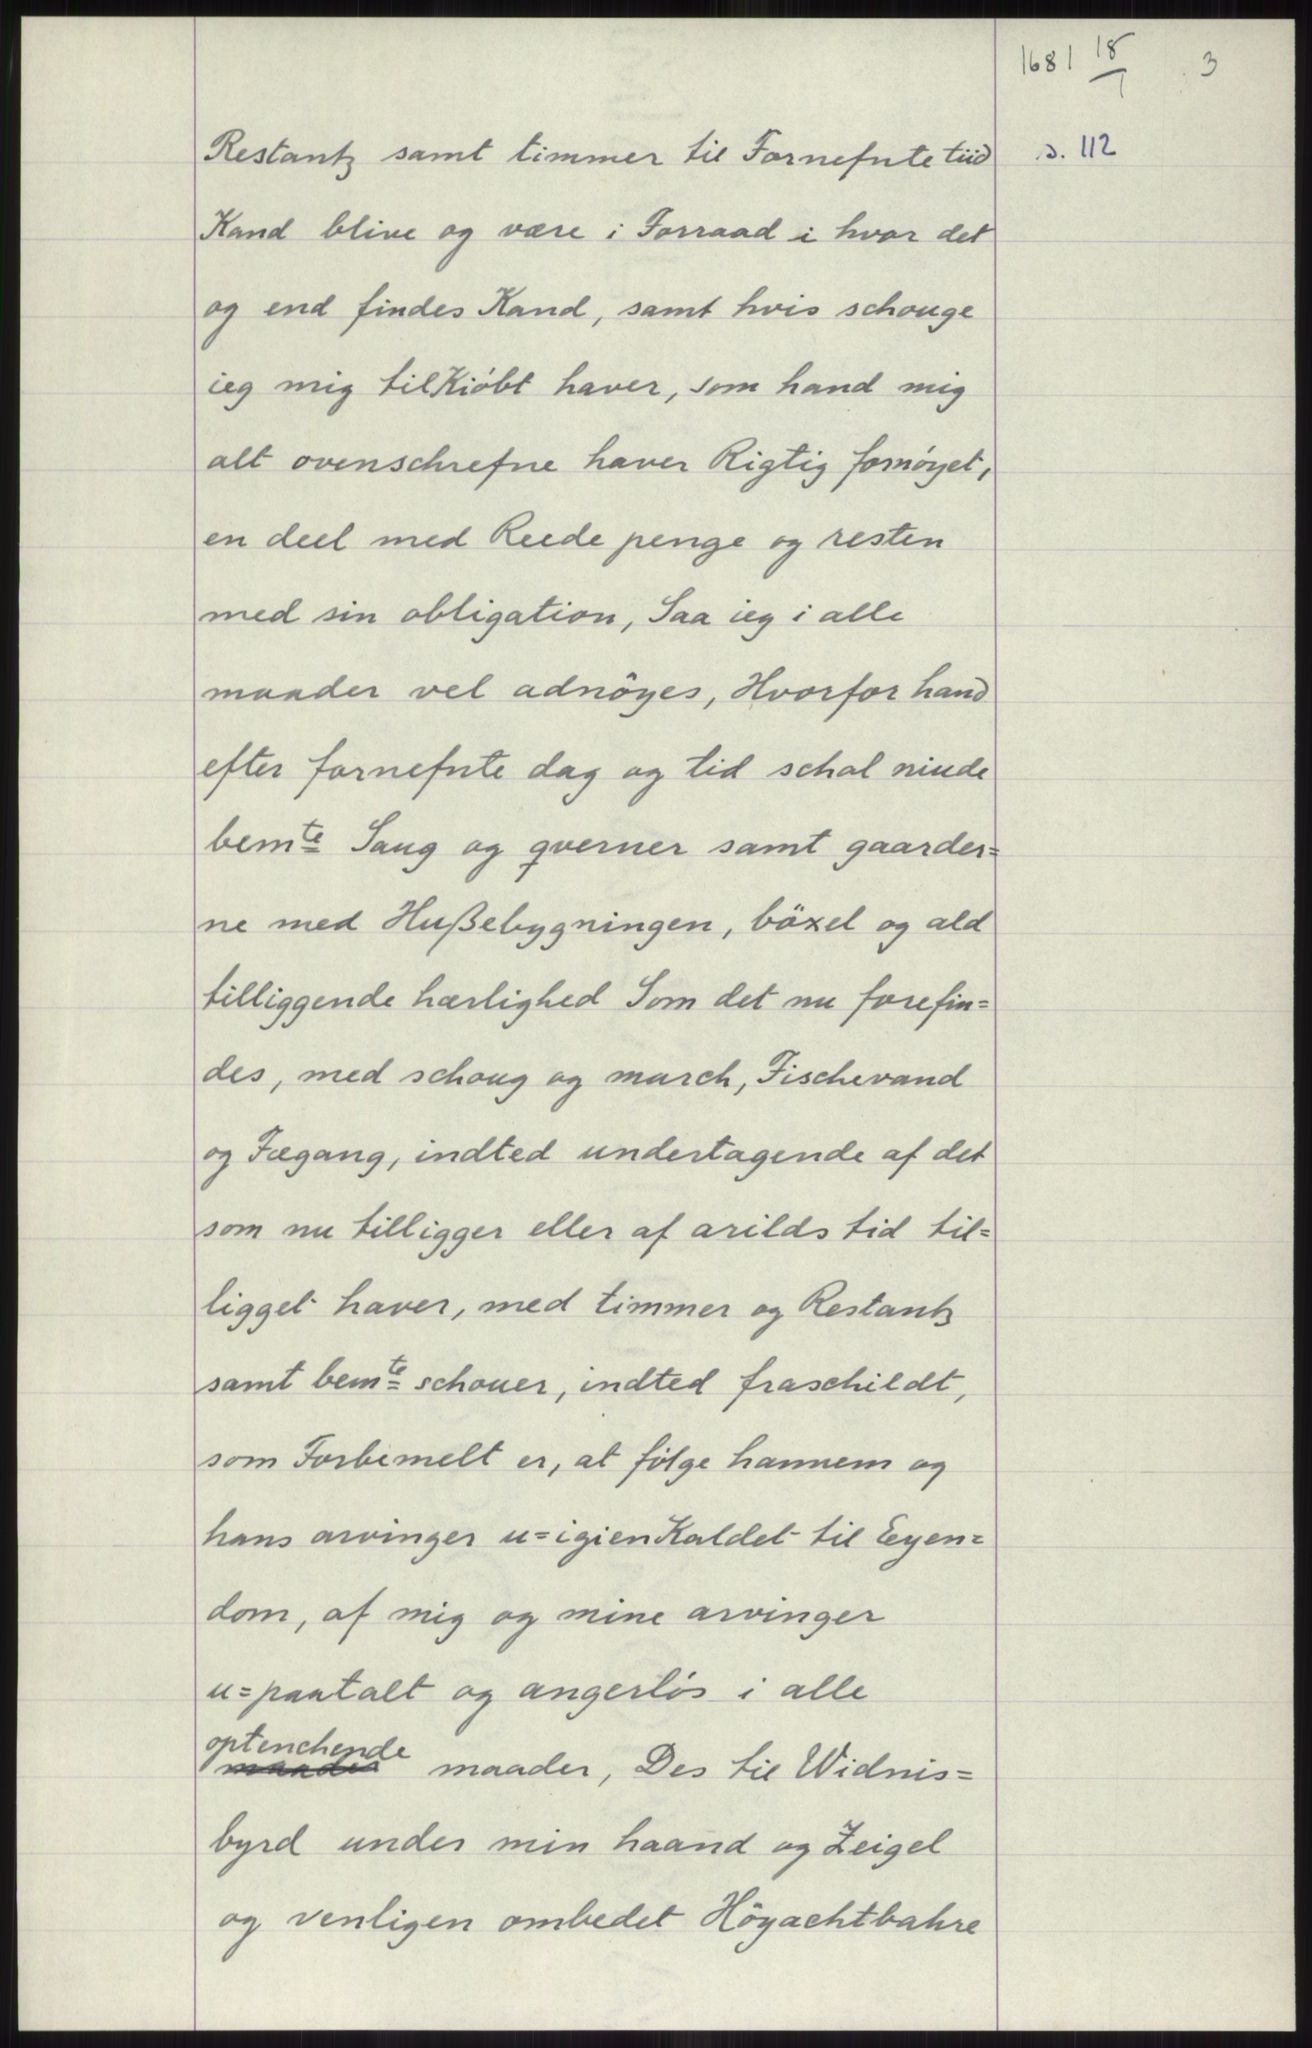 1681 18/7 3
Restantz samt timmer til Fornefnte tiid s. 112
Kand blive og være i Forraad i hvor det
og end findes Kand, samt hvis schouge
ieg mig tilKiöbt haver, som hand mig
alt ovenschrefne haver Rigtig fornöyet,
en deel med Reede penge og resten
med sin obligation, Saa ieg i alle
maader vel adnöyes, Hvorfor hand
efter fornefnte dag og tid schal niude
bemte Saug og qverner samt gaarder=
ne med Hußebygningen, böxel og ald
tilliggende hærlighed Som det nu forefin=
des, med schoug og march, Fischevand
og Fægang, indted undertagende af det
som nu tilligger eller af arilds tid til=
ligget haver, med timmer og Restantz
samt bemte schouer, indted fraschildt,
som Forbemelt er, at følge hannem og
hans arvinger u=igienKaldet til Eyen=
dom, af mig og mine arvinger
u=paatalt og angerlös i alle
optenchende
maader maader, Des til Widnis=
byrd under min haand og Zeigel
og venligen ombedet Höyachtbahre